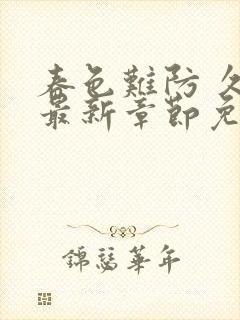 春色難防 久
最新章節免
錦瑟華年